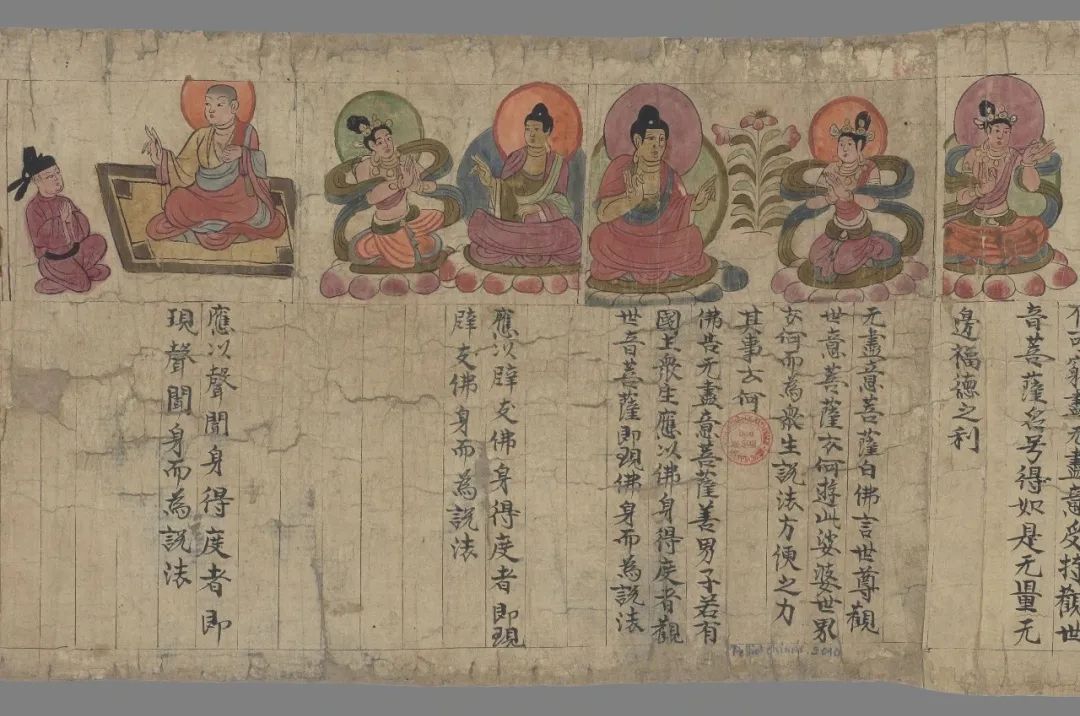 窮盡无盡意受持觀世
音菩薩名号得如是无量无
邊福德之利
无盡意菩薩白佛言世尊觀
世音菩薩云何遊此娑婆世界
云何而為眾生説法方便之力
其事云何
佛告无盡意菩薩善男子若有
國土衆生應以佛身得度者觀
世音菩薩即現佛身而為説法
應以辟支佛身得度者即現
辟支佛身而為説法
應以聲聞身得度者即
現聲聞身而為説法
Pelliot chinois. 2010